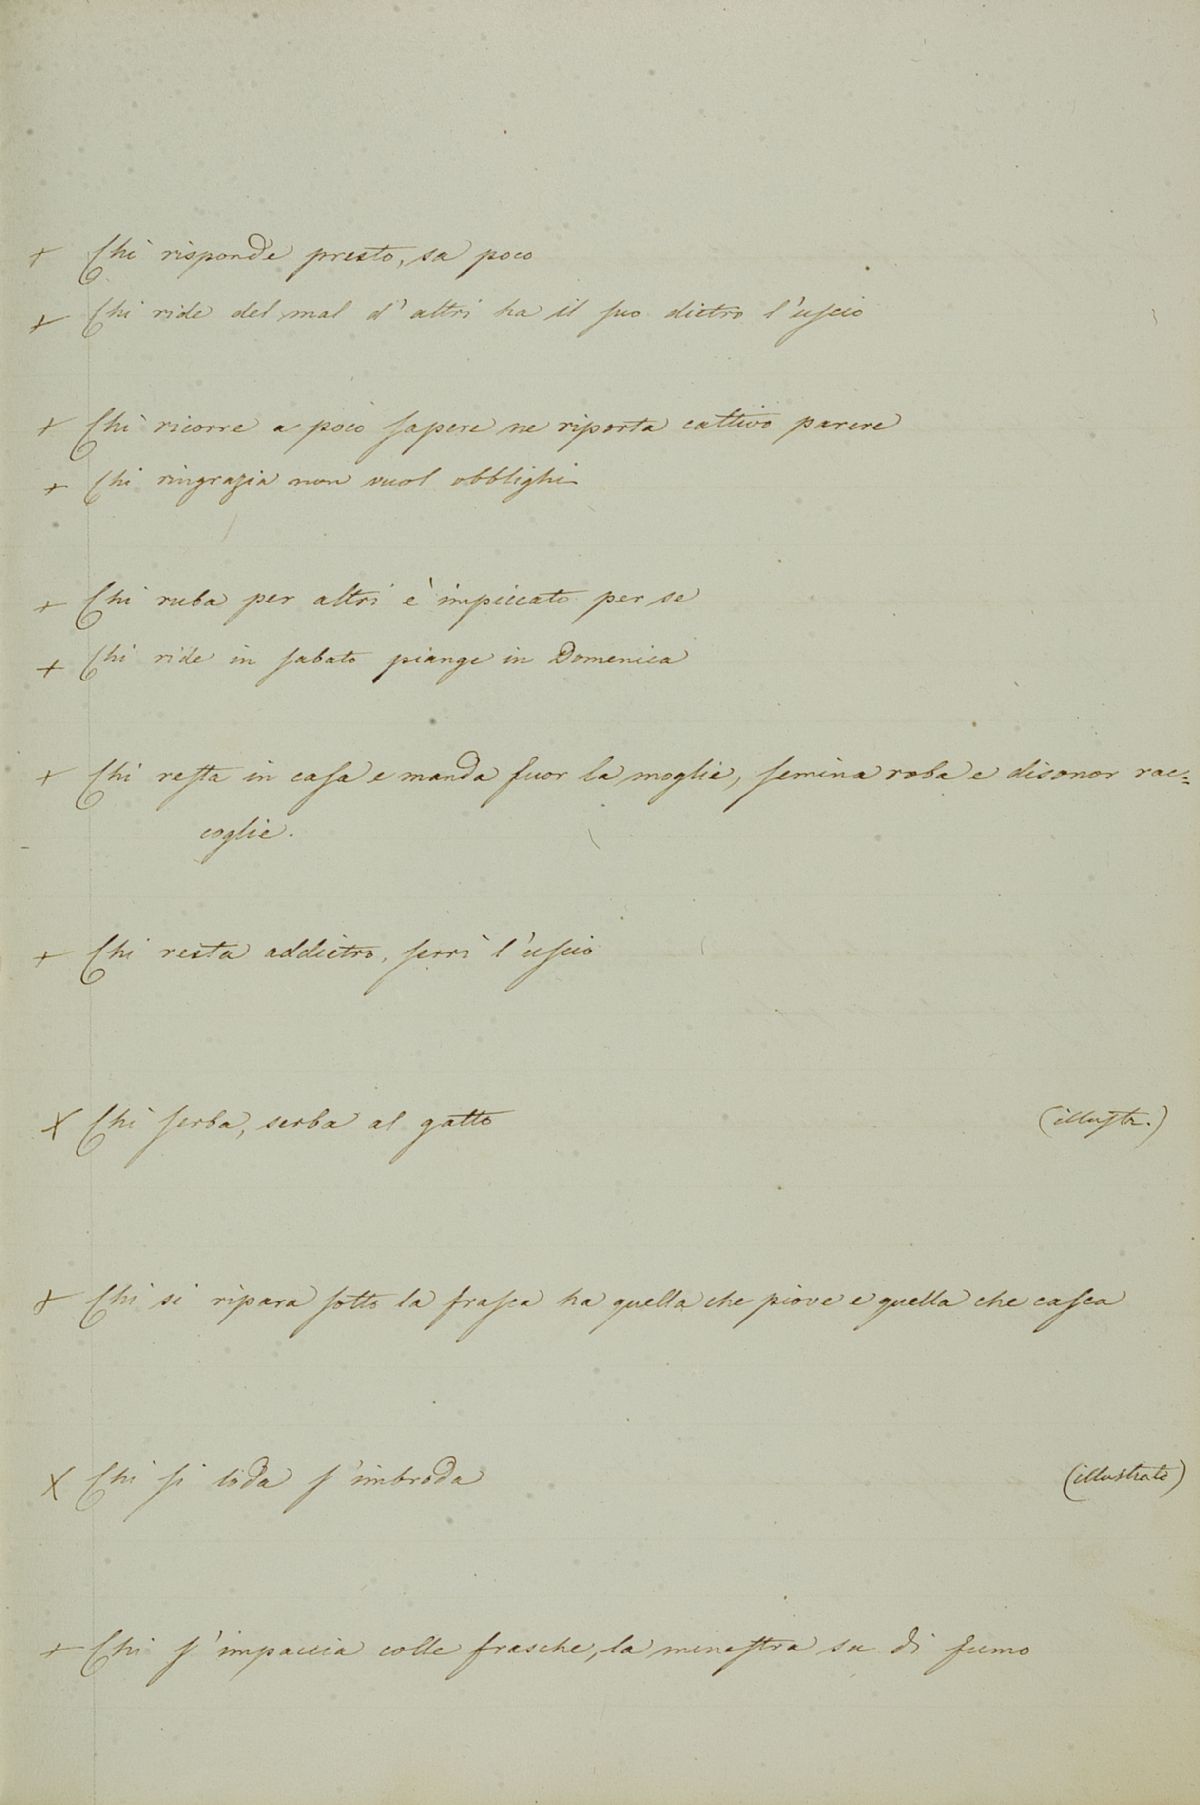 + Chi risponde presto, sa poco
+ Chi ride del mal d'altri ha il suo dietro l'uscio
+ Chi ricorre a poco sapere ne riporta cattivo parere
+ Chi ringrazia non vuol obblighi
+ Chi ruba per altri è impiccato per se
+ Chi ride in sabato piange in Domenica
+ Chi resta in casa e manda fuor la moglie, semina roba e disonor rac=
coglie.
+ Chi resta addietro, serri l'uscio
X Chi serba, serba al gatto (illustr.)
+ Chi si ripara sotto la frasca ha quella che piove e quella che casca
X Chi si loda s'imbroda (illustrato)
+ Chi s'impaccia colle frasche, la minestra sa di fumo